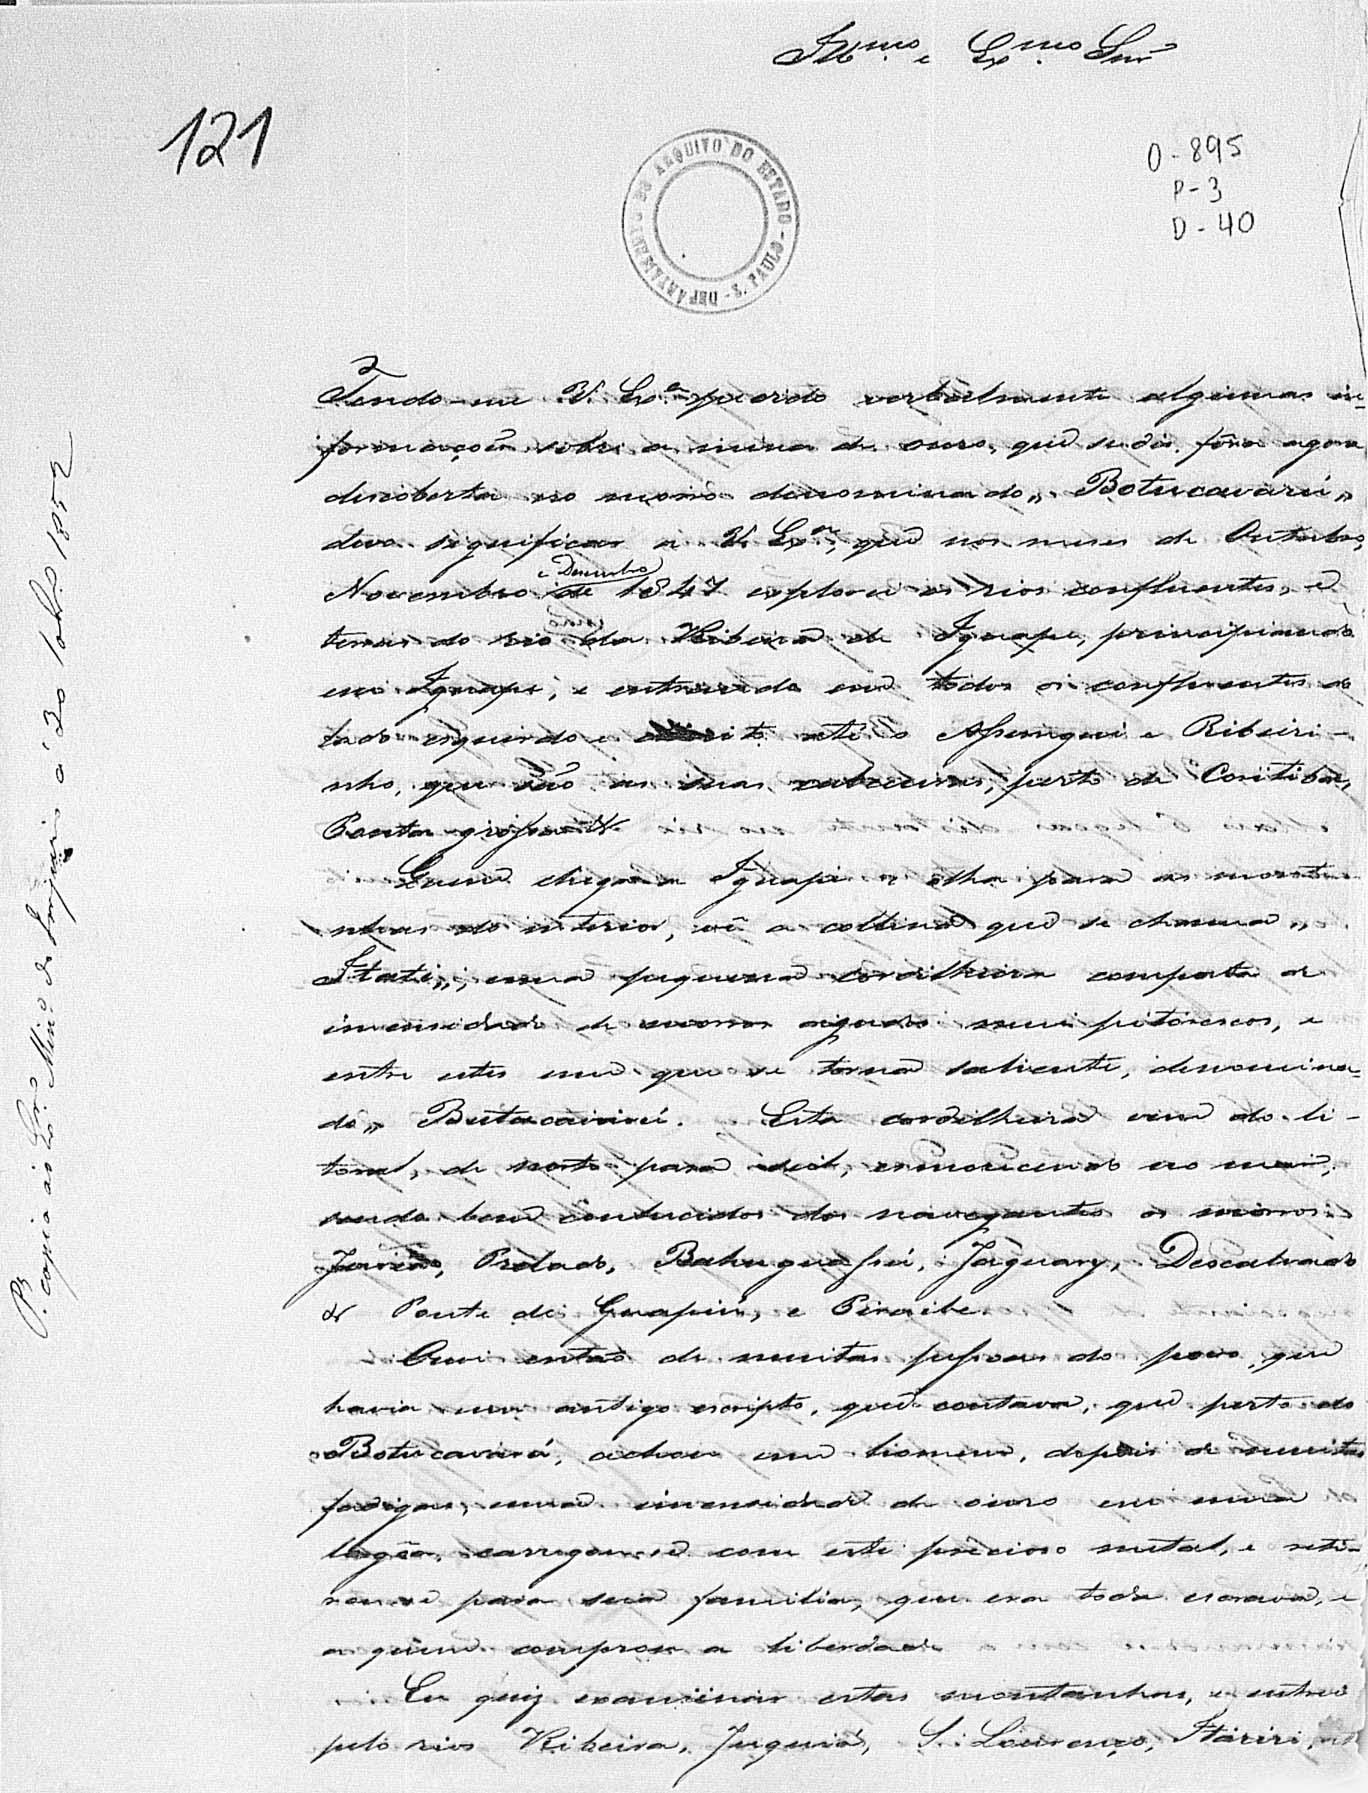 Illmo. e Exmo. Snr
121
DEPARTAMENTO DO ARQUIVO DO ESTADO - S. PAULO -
O - 895
P - 3
D - 40
Tendo-me V. Exa. verbalmente algumas in-
formações sobre a mina de ouro, que se diz fôra agora
descoberta no morro denominado „ Botucavarú „
devo significar a V. Exa., que nos meses de Outubro,
e Desembro
Novembro de 1847 explorei os rios confluentes, e
terras do rio da Ribeira de Iguape, principiando
em Iguape, e entrando em todos os confluentes do
lado esquerdo e até o Assungui e Ribeiri-
nho, que são as suas cabeceiras, perto de Coritiba,
Ponta grossa &
Quem chega a Iguape e olha para as monta-
nhas do interior, vê a collina que se chama „
Itati „, uma pequena cordilheira composta de
imensidade de morros agudos mui pitorescos, e
entre estes um que se torna saliente, denomina-
do „ Butucavarú. Esta cordilheira vem do li-
toral, de norte para sul, esmorecendo no mar,
sendo bem conhecidos dos navegantes os morros
Juréa, Pedado, Jaguary, Descalvado
& Ponte de e
Ouvi então de muitas pessoas do povo que
havia um antigo escripto, que contava, que perto do
Botucavarú, achou um homem, depois de muitas
fadigas, uma imensidade de ouro em uma
lagôa, carregou-se com este precioso metal, e reti-
rou-se para sua familia, que era toda escrava, e
a quem comprou a liberdade
Eu quiz examinar estas montanhas, e entrei
pelo rios Ribeira, Juquiá, S. Lourenço, Itariri,
P. copia ao Exmo. Snr. Mino. do Imperio a 20 1852